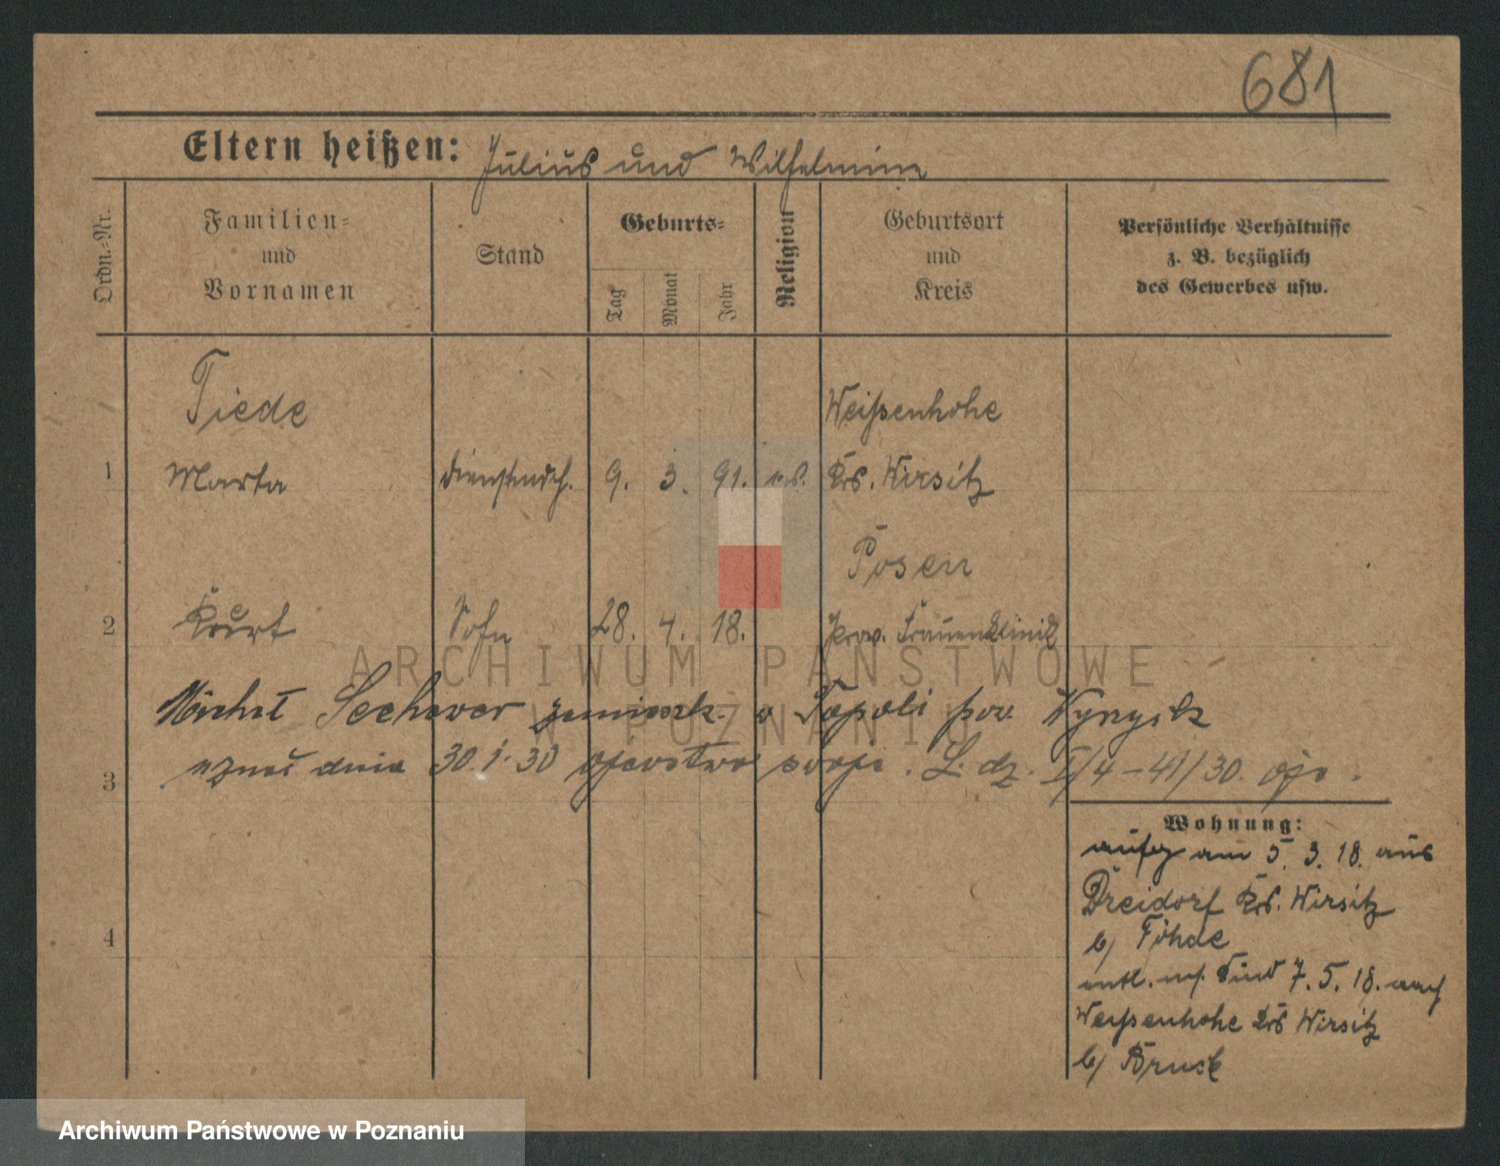 681
Eltern heißen: Julius und Wilhelmine
Ordn.-Nr.
Familien- und Vornamen
Stand
Geburts-
Tag
Monat
Jahr
Religion
Geburtsort und Kreis
Persönliche Verhältnisse z. B. bezüglich des Gewerbes usw.
Tiede Weißenhöhe
1 Marta 9. 3. 91. Krs. Wirsitz
Posen
2 Kurt Sohn 28. 4. 18. Prov. Frauenklinik
Michał zamieszk. w pow. Wyrzysk
3 uznał dnia 30.1.30 ojcostwo L. dz. I/4-41/30.
Wohnung:
am 5. 3. 18. aus
Dreidorf Krs. Wirsitz
b/
entl. m. Kind 7. 5. 18. nach
Weißenhöhe Krs Wirsitz
b/ Bruck
4
ARCHIWUM PAŃSTWOWE
W POZNANIU
Archiwum Państwowe w Poznaniu